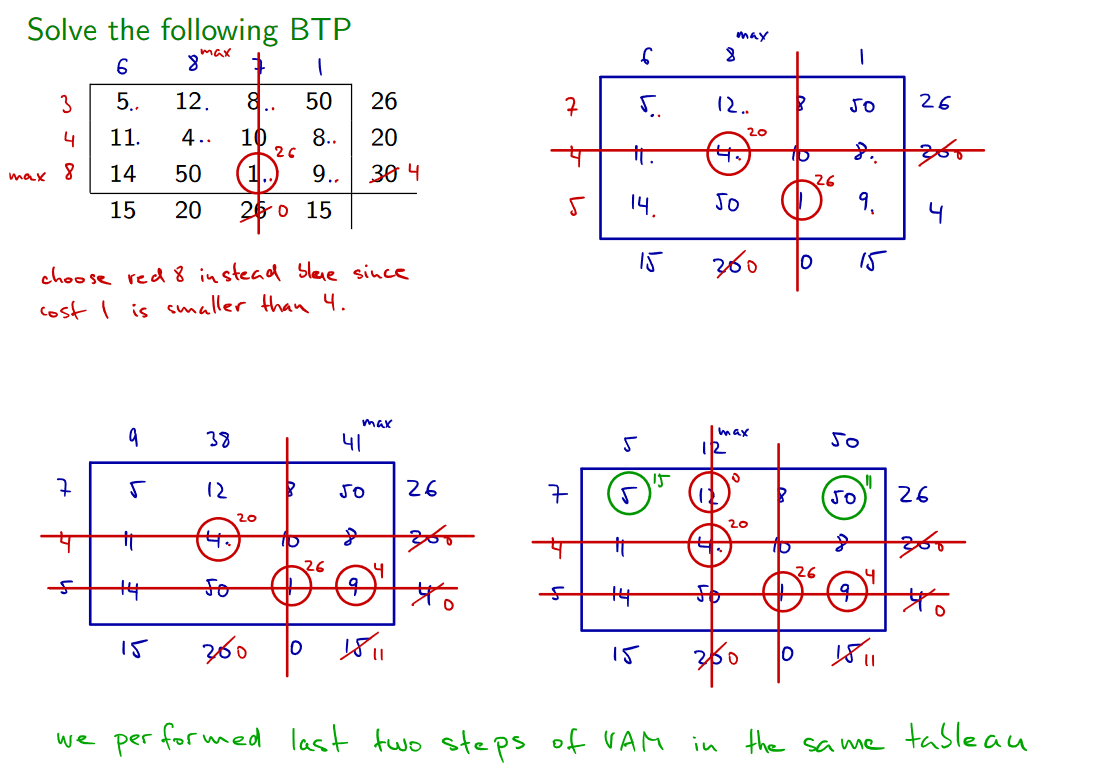 Solve the following BTP
6 8 max 7 1
3 5.. 12. 8.. 50 26
4 11. 4.. 10 8.. 20
26
max 8 14 50 1.. 9.. 30 4
15 20 26 0 15
choose red 8 instead blue since
cost 1 is smaller than 4.
max
6 8 1
7 5.. 12.. 8 50 26
20
4 11. 4. 10 8. 20 0
26
5 14. 50 1 9. 4
15 20 0 0 15
max
9 38 41
7 5 12 8 50 26
20
4 11 4. 10 8 20 0
26 4
5 14 50 1 9 4 0
15 20 0 0 15 11
max
5 12 50
15 0 11
7 5 12 8 50 26
20
4 11 4. 10 8 20 0
26 4
5 14 50 1 9 4 0
15 20 0 0 15 11
we performed last two steps of VAM in the same tableau